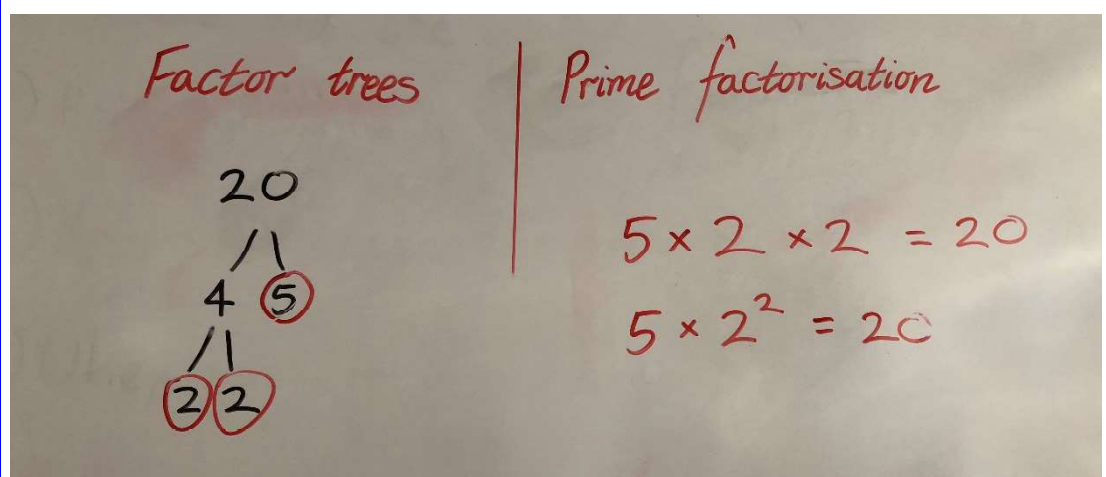 Factor trees
20
4 5
2 2
Prime factorisation
5 × 2 × 2 = 20
5 × 2² = 20